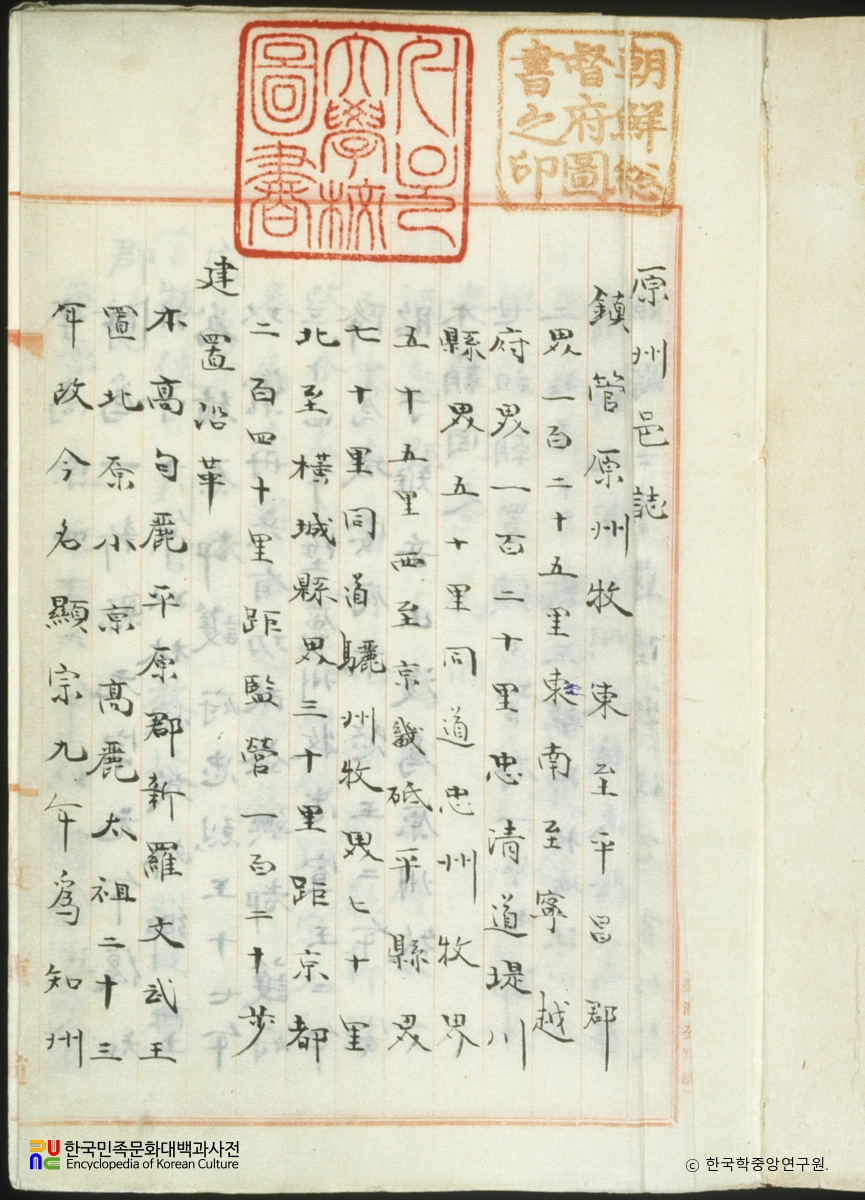 朝鮮總
督府圖
書之印
大學校
圖書
原州邑誌
鎮管原州牧東至平昌郡
界一百二十五里東南至寧越
府界一百二十里忠清道堤川
縣界五十里同道忠州牧界
五十五里西至京畿砥平縣界
七十里同道驪州牧界七十里
北至橫城縣界三十里距京都
二百四十里距監營一百二十步
建置沿革
本高句麗平原郡新羅文武王
置北原小京高麗太祖二十三
年改今名顯宗九年爲知州
한국민족문화대백과사전
Encyclopedia of Korean Culture
© 한국학중앙연구원.